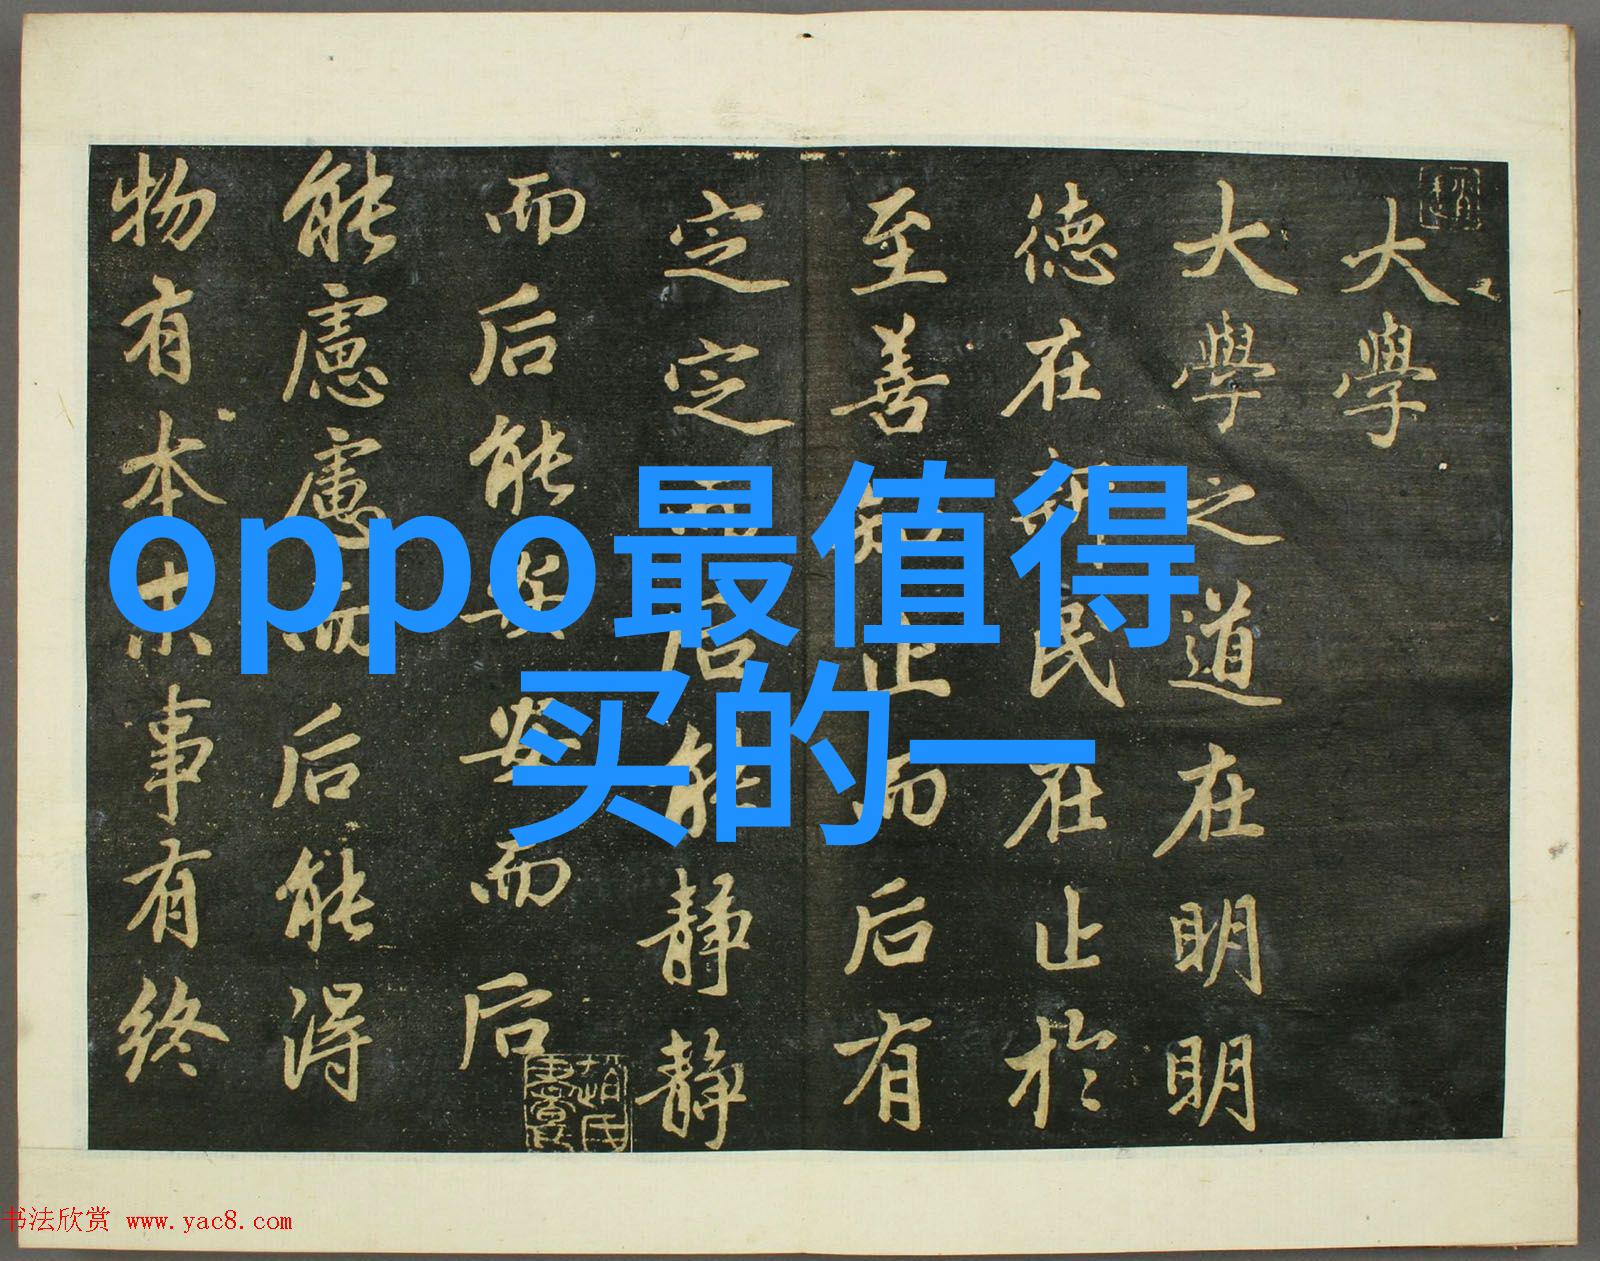 大學
大學之道在明明
德在新民在止於
至善知止而后有
定定而后能静静
而后能安安而后
能慮慮而后能得
物有本末事有終
oppo最值得
买的一
书法欣赏 www.yac8.com